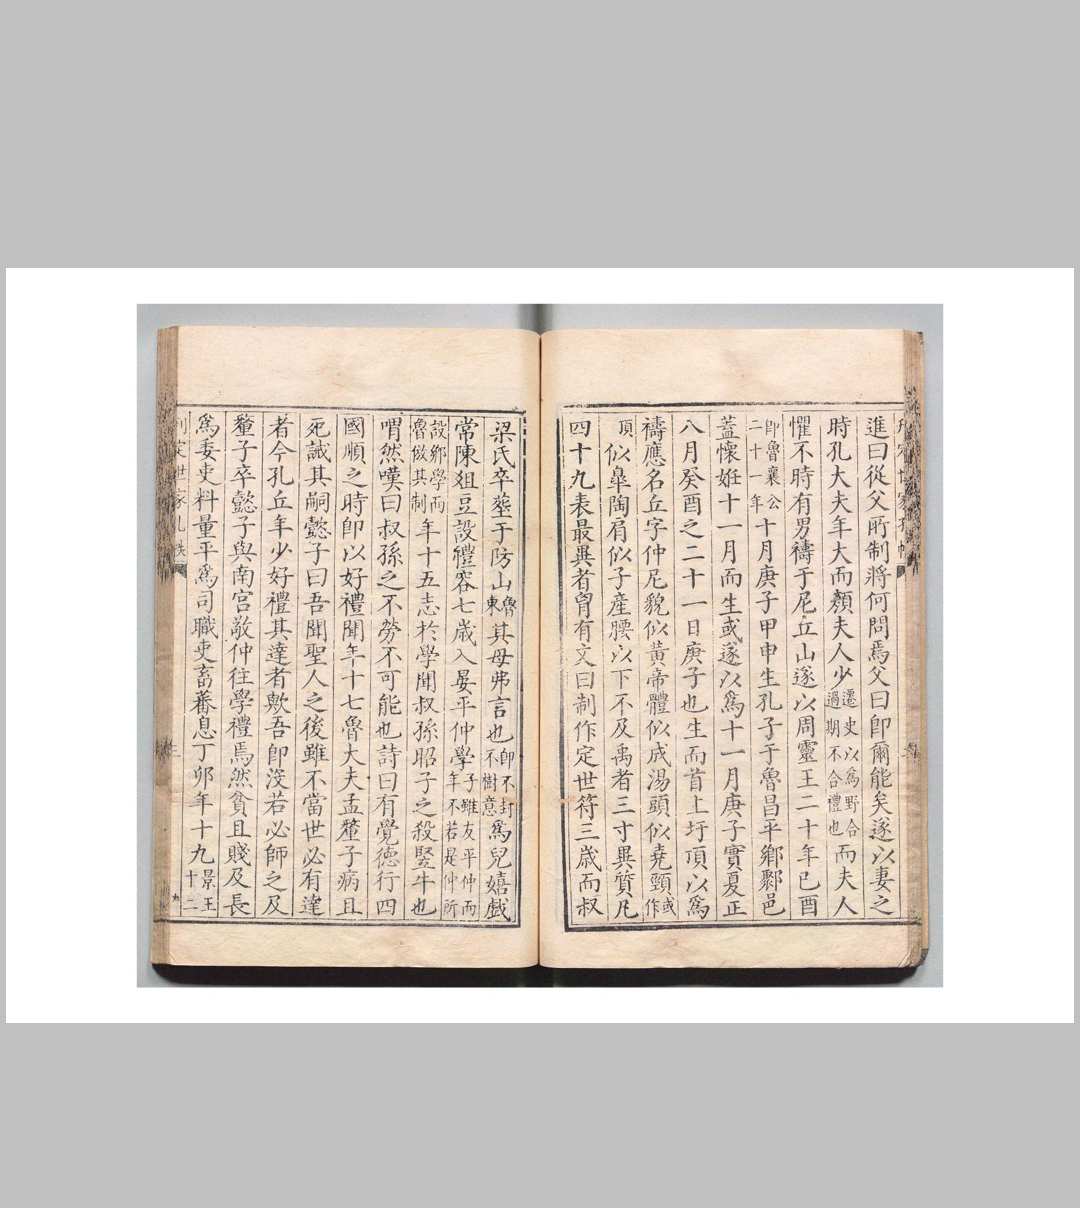 進曰從父所制將何問焉父曰卽爾能矣遂以妻之
時孔大夫年大而顏夫人少遷史以爲野合過期不合禮也而夫人
懼不時有男禱于尼丘山遂以周靈王二十年已酉
卽魯襄公二十一年十月庚子甲申生孔子于魯昌平鄉鄹邑
蓋懷姙十一月而生或遂以爲十一月庚子實夏正
八月癸酉之二十一日庚子也生而首上圩頂以爲
禱應名丘字仲尼貌似黃帝體似成湯頭似堯頸或作
頂似皐陶肩似子產腰以下不及禹者三寸異質凡
四十九表最異者胷有文曰制作定世符三歲而叔
梁氏卒塟于防山魯東其母弗言也卽不封不樹意爲兒嬉戲
常陳俎豆設禮容七歲入晏平仲學子雖友平仲而年不若是仲所
設鄉學而魯倣其制年十五志於學聞叔孫昭子之殺豎牛也
喟然嘆曰叔孫之不勞不可能也詩曰有覺德行四
國順之時卽以好禮聞年十七魯大夫孟釐子病且
死誡其嗣懿子曰吾聞聖人之後雖不當世必有達
者今孔丘年少好禮其達者歟吾卽沒若必師之及
釐子卒懿子與南宮敬仲往學禮焉然貧且賤及長
爲委吏料量平爲司職吏畜蕃息丁卯年十九景王十二